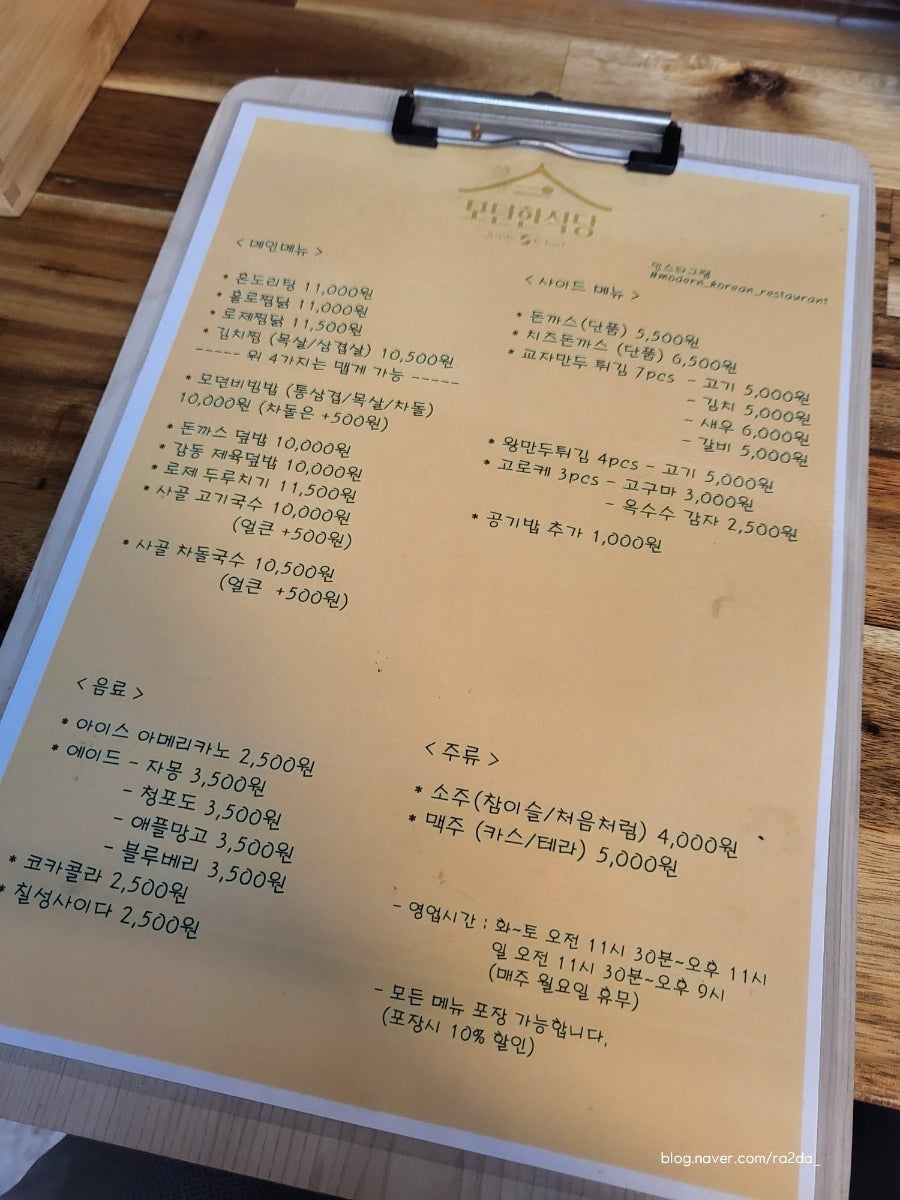 모던한식당
인스타그램
#modern_korean_restaurant
< 메인메뉴 >
* 혼도리탕 11,000원
* 홀로찜닭 11,000원
* 로제찜닭 11,500원
* 김치찜 (목살/삼겹살) 10,500원
----- 위 4가지는 맵게 가능 -----
* 모던비빔밥 (통삼겹/목살/차돌)
10,000원 (차돌은 +500원)
* 돈까스 덮밥 10,000원
* 감동 제육덮밥 10,000원
* 로제 두루치기 11,500원
* 사골 고기국수 10,000원
(얼큰 +500원)
* 사골 차돌국수 10,500원
(얼큰 +500원)
< 사이드 메뉴 >
* 돈까스(단품) 5,500원
* 치즈돈까스 (단품) 6,500원
* 교자만두 튀김 7pcs - 고기 5,000원
- 김치 5,000원
- 새우 6,000원
- 갈비 5,000원
* 왕만두튀김 4pcs - 고기 5,000원
* 고로케 3pcs - 고구마 3,000원
- 옥수수 감자 2,500원
* 공기밥 추가 1,000원
< 음료 >
* 아이스 아메리카노 2,500원
* 에이드 - 자몽 3,500원
- 청포도 3,500원
- 애플망고 3,500원
- 블루베리 3,500원
* 코카콜라 2,500원
* 칠성사이다 2,500원
< 주류 >
* 소주(참이슬/처음처럼) 4,000원
* 맥주 (카스/테라) 5,000원
- 영업시간 : 화~토 오전 11시 30분~오후 11시
일 오전 11시 30분~오후 9시
(매주 월요일 휴무)
- 모든 메뉴 포장 가능합니다.
(포장시 10% 할인)
blog.naver.com/ra2da_